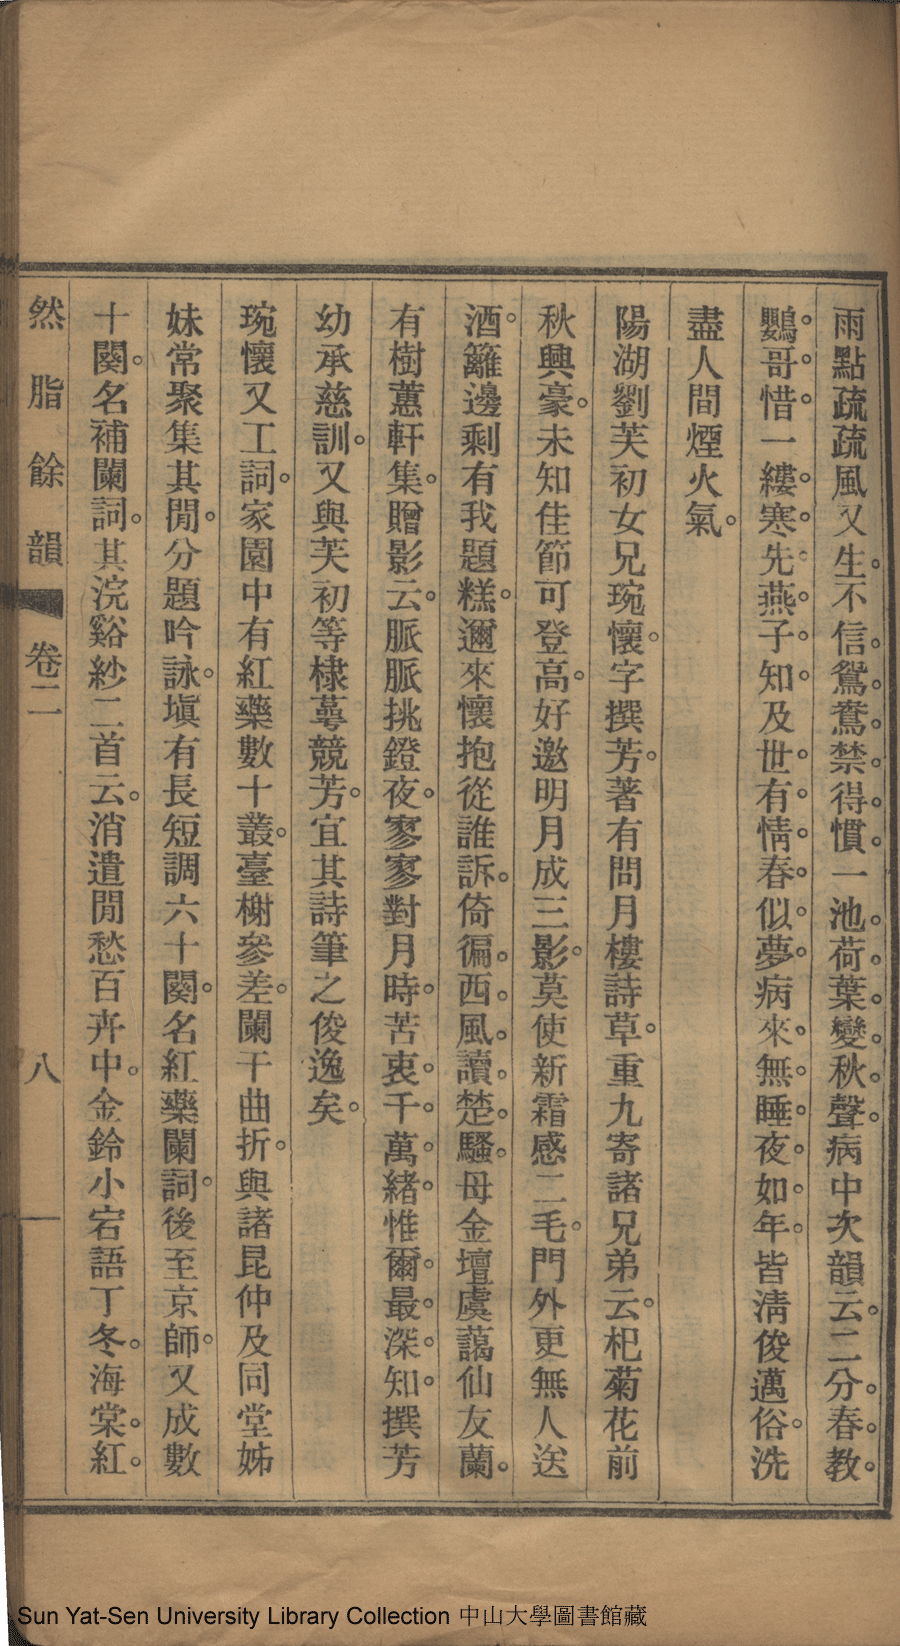 雨點疏疏風又生。不信。鴛。鴦。禁。得。慣。一池。荷。葉。變。秋。聲。病中次韻云。二分。春。教。
鸚。哥。惜。一縷。寒。先。燕。子。知。及世。有。情。春。似。夢。病來。無。睡。夜。如。年。皆淸俊邁俗。洗
盡人間煙火氣。
陽湖劉芙初女兄琬懷。字撰芳。著有問月樓詩草。重九寄諸兄弟云。杞菊花前
秋興豪。未知佳節可登高。好邀明月成三影。莫使新霜感二毛。門外更無人送
酒。籬邊剩有我題糕。邇來懷抱從誰訴。倚徧。西。風。讀。楚。騷。母金壇虞藹仙友蘭。
有樹蕙軒集。贈影云。脈脈挑鐙夜。寥寥對月時。苦衷。千。萬。緒。惟爾。最。深。知。撰芳
幼承慈訓。又與芙初等棣蕚競芳。宜其詩筆之俊逸矣。
琬懷又工詞。家園中有紅藥數十叢。臺榭參差。闌干曲折。與諸昆仲及同堂姊
妹常聚集其閒。分題吟詠。塡有長短調六十闋。名紅藥闌詞。後至京師。又成數
十闋。名補闌詞。其浣谿紗二首云。消遣閒愁百卉中。金鈴小宕語丁冬。海棠。紅。
然脂餘韻 卷二 八
Sun Yat-Sen University Library Collection 中山大學圖書館藏